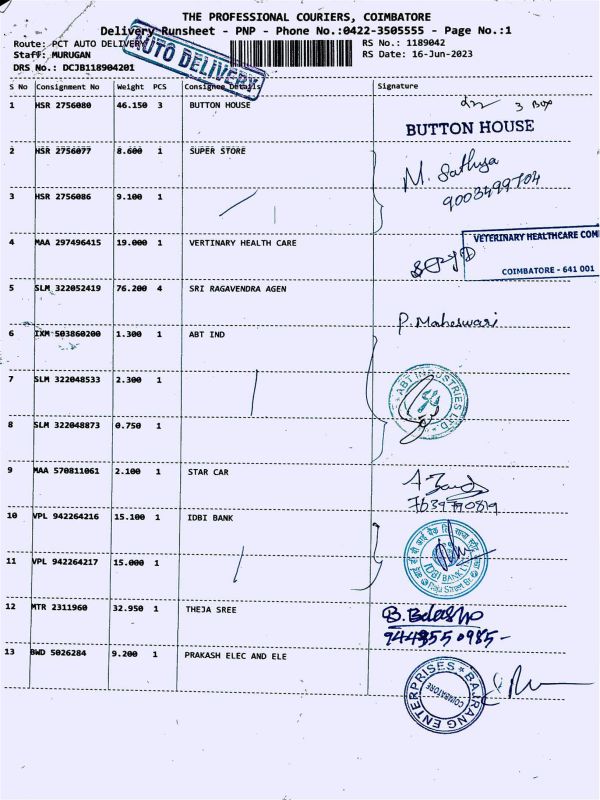 THE PROFESSIONAL COURIERS, COIMBATORE
Delivery Runsheet - PNP - Phone No.:0422-3505555 - Page No.:1
Route: PCT AUTO DELIVERY
RS No.: 1189042
Staff: MURUGAN
RS Date: 16-Jun-2023
DRS No.: DCJB118904201
AUTO DELIVERY
S No Consignment No Weight PCS Consignee Details Signature
1 HSR 2756080 46.150 3 BUTTON HOUSE
3 Box
BUTTON HOUSE
2 HSR 2756077 8.600 1 SUPER STORE
M. Sathya
9003499704
3 HSR 2756086 9.100 1
4 MAA 297496415 19.000 1 VERTINARY HEALTH CARE
VETERINARY HEALTHCARE COM
COIMBATORE - 641 001
5 SLM 322052419 76.200 4 SRI RAGAVENDRA AGEN
P. Maheswari
6 IXM 503860200 1.300 1 ABT IND
7 SLM 322048533 2.300 1
ABT INDUSTRIES LTD
8 SLM 322048873 0.750 1
9 MAA 570811061 2.100 1 STAR CAR
7639790819
10 VPL 942264216 15.100 1 IDBI BANK
IDBI BANK LTD
Raju Street Br
11 VPL 942264217 15.000 1
12 MTR 2311960 32.950 1 THEJA SREE
13 BWD 5026284 9.200 1 PRAKASH ELEC AND ELE
BAJRANG ENTERPRISES
COIMBATORE